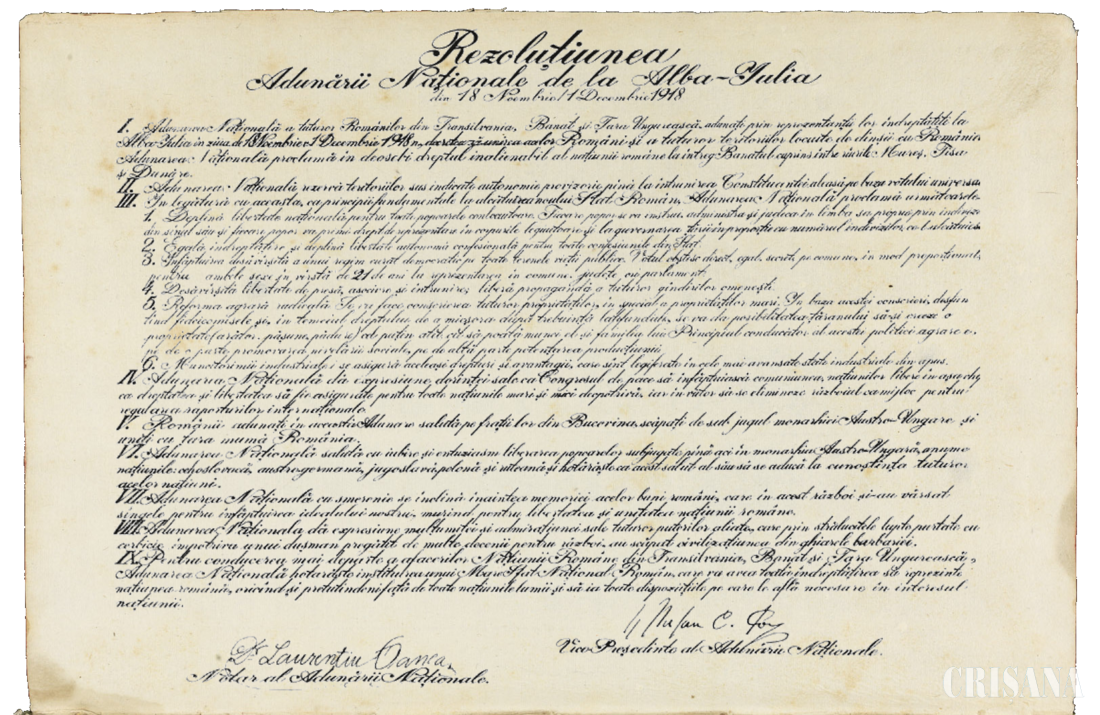 Rezoluțiunea
Adunării Naționale de la Alba-Iulia
din 18 Noembrie/1 Decembrie 1918
I. Adunarea Națională a tuturor Românilor din Transilvania, Banat și Țara Ungurească, adunați prin reprezentanții lor îndreptățiți la
Alba-Iulia în ziua de 18 Noembrie/1 Decembrie 1918, decretează unirea acelor Români și a tuturor teritoriilor locuite de dînșii cu România.
Adunarea Națională proclamă în deosebi dreptul inalienabil al națiunii române la întreg Banatul cuprins între rîurile Mureș, Tisa
și Dunăre.
II. Adunarea Națională rezervă teritoriilor sus indicate autonomie provizorie pînă la întrunirea Constituantei aleasă pe baza votului universal.
III. In legătură cu aceasta, ca principii fundamentale la alcătuirea noului Stat Român, Adunarea Națională proclamă următoarele:
1. Deplină libertate națională pentru toate popoarele conlocuitoare. Fiecare popor se va instrui, administra și judeca în limba sa proprie prin indivizi
din sînul său și fiecare popor va primi drept de reprezentare în corpurile legiuitoare și la guvernarea țării în proporție cu numărul indivizilor ce-l alcătuiesc.
2. Egală îndreptățire și deplină libertate autonomă confesională pentru toate confesiunile din Stat.
3. Înfăptuirea desăvîrșită a unui regim curat democratic pe toate terenele vieții publice. Votul obștesc, direct, egal, secret, pe comune, în mod proporțional,
pentru ambele sexe, în vîrstă de 21 de ani la reprezentarea în comune, județe ori parlament.
4. Desăvîrșită libertate de presă, asociere și întrunire; liberă propagandă a tuturor gîndurilor omenești.
5. Reforma agrară radicală. Se va face conscrierea tuturor proprietăților, în special a proprietăților mari. In baza acestei conscrieri, desfiin
țînd fideicomisele și, în temeiul dreptului de a micșora după trebuință latifundiile, se va da posibilitatea țăranului să-și creeze o
proprietate (arător, pășune, pădure) cel puțin atît cît să poată munci el și familia lui. Principiul conducător al acestei politici agrare e
pe de o parte promovarea nivelării sociale, pe de altă parte potențarea producțiunii.
6. Muncitorimii industriale i se asigură aceleași drepturi și avantagii, care sînt legiferate în cele mai avansate state industriale din apus.
IV. Adunarea Națională dă expresiune dorinței sale ca Congresul de pace să înfăptuiască comuniunea națiunilor libere în așa chip,
ca dreptatea și libertatea să fie asigurate pentru toate națiunile mari și mici deopotrivă, iar în viitor să se elimineze războiul ca mijloc pentru
regularea raporturilor internaționale.
V. Românii adunați în această Adunare salută pe frații lor din Bucovina, scăpați de sub jugul monarhiei Austro-Ungare și
uniți cu țara mumă România.
VI. Adunarea Națională salută cu iubire și entuziasm liberarea popoarelor subjugate pînă aci în monarhia Austro-Ungară, anume
națiunile: cehoslovacă, austro-germană, jugoslavă, polonă și ruteană și hotărăște ca acest salut al său să se aducă la cunoștința tuturor
acelor națiuni.
VII. Adunarea Națională cu smerenie se înclină înaintea memoriei acelor buni români, care în acest război și-au vărsat
sîngele pentru înfăptuirea idealului nostru, murind pentru libertatea și unitatea națiunii române.
VIII. Adunarea Națională dă expresiune mulțumitei și admirațiunei sale tuturor puterilor aliate, care prin strălucitele lupte purtate cu
cerbicie împotriva unui dușman pregătit de multe decenii pentru război, au scăpat civilizațiunea din ghiarele barbariei.
IX. Pentru conducerea mai departe a afacerilor Națiunii Române din Transilvania, Banat și Țara Ungurească,
Adunarea Națională hotărăște instituirea unui Mare Sfat Național Român, care va avea toată îndreptățirea să reprezinte
națiunea română, oricînd și pretutindeni față de toate națiunile lumii și să ia toate dispozițiile pe care le află necesare în interesul
națiunii.
Ștefan C. Pop
Vice Președinte al Adunării Naționale.
Dr. Laurențiu Oanea,
Notar al Adunării Naționale.
CRISANA